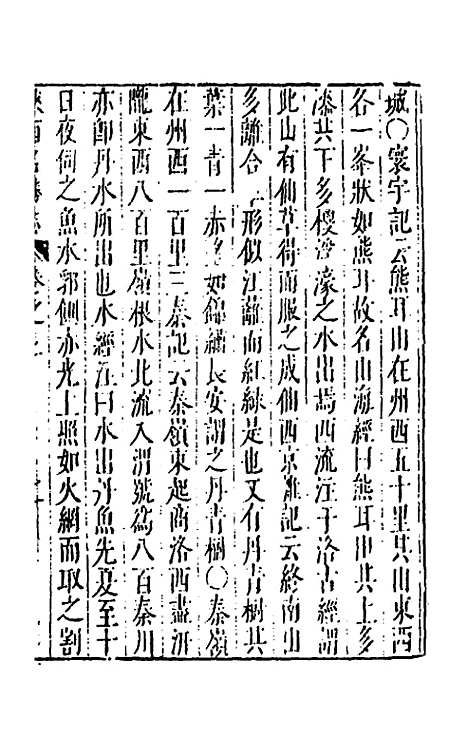 城○寰宇記云熊耳山在州西五十里其山東西
各一峯狀如熊耳故名山海經曰熊耳山其上多
漆其下多㯶浮濠之水出焉西流注于洛古經謂
此山有仙草得而服之成仙西京雜記云終南山
多離合草形似江蘺而紅綠是也又有丹青樹其
葉一青一赤如錦繡長安謂之丹青樹○秦嶺
在州西一百里三秦記云秦嶺東起商洛西盡汧
隴東西八百里嶺根水北流入渭號為八百秦川
亦卽丹水所出也水經注曰水出丹魚先夏至十
日夜伺之魚水郭側赤光上照如火網而取之割
陝西名勝志 卷之